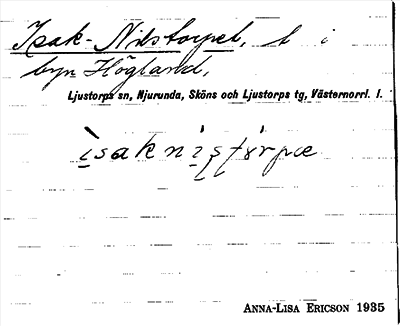 Isak-Nilstorpet, t i
byn Högland,
Ljustorps sn, Njurunda, Sköns och Ljustorps tg, Västernorrl. l.
ìsakni̱ştòrpæ
ANNA-LISA ERICSON 1935